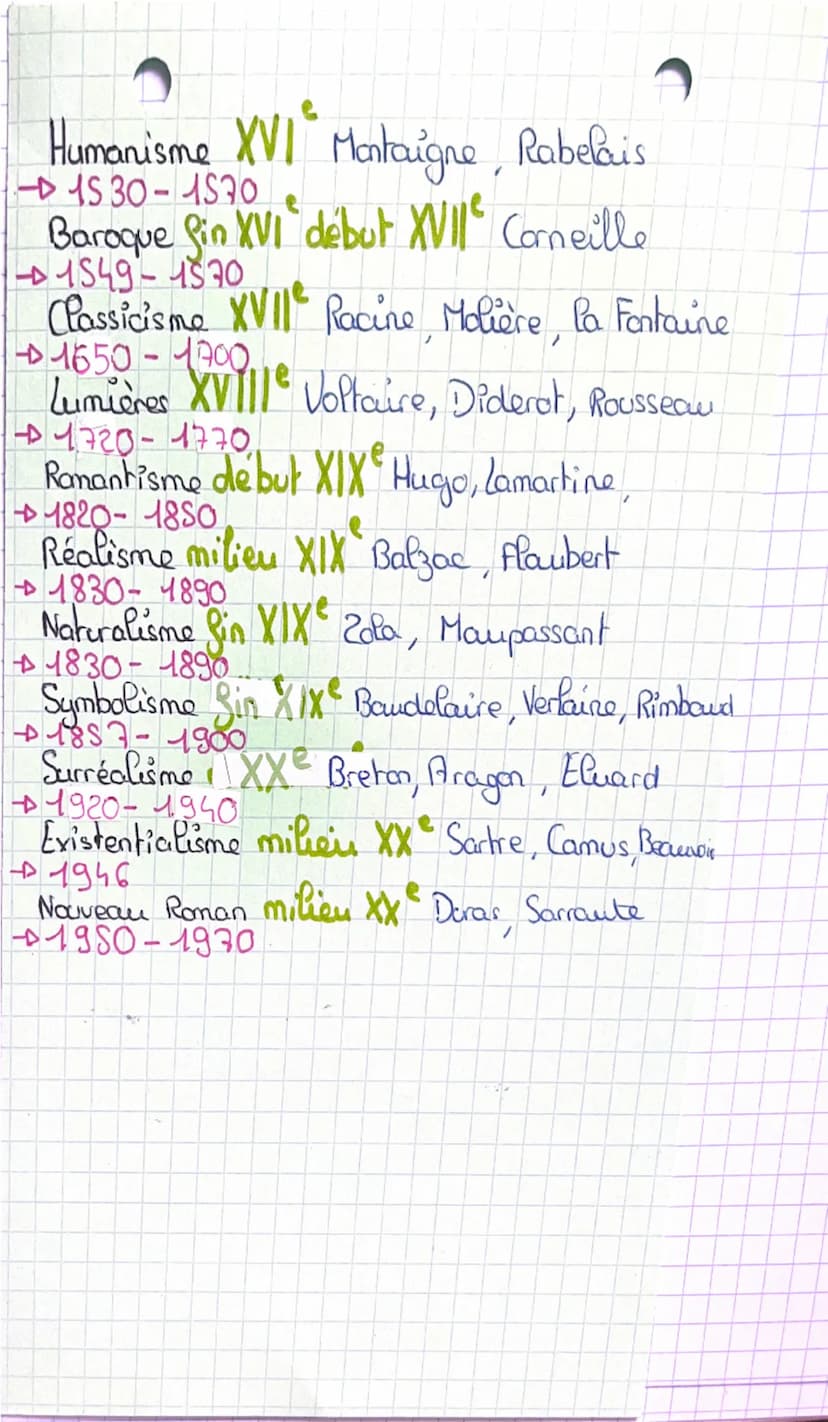 Humanisme XVIe Montaigne, Rabelais
→ 1530 - 1570
Baroque fin XVIe début XVIIe Corneille
→ 1549 - 1570
Classicisme XVIIe Racine, Molière, la Fontaine
→ 1650 - 1700
Lumières XVIIIe Voltaire, Diderot, Rousseau
→ 1720 - 1770
Romantisme début XIXe Hugo, Lamartine,
→ 1820 - 1850
Réalisme milieu XIXe Balzac, Flaubert
→ 1830 - 1890
Naturalisme fin XIXe Zola, Maupassant
→ 1830 - 1890
Symbolisme fin XIXe Baudelaire, Verlaine, Rimbaud
→ 1857 - 1900
Surréalisme XXe Breton, Aragon, Eluard
→ 1920 - 1940
Existentialisme milieu XXe Sartre, Camus, Beauvoir
→ 1946
Nouveau Roman milieu XXe Duras, Sarraute
→ 1950 - 1970